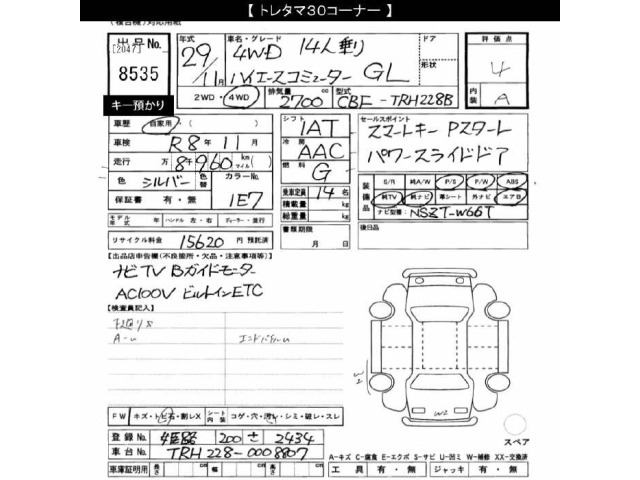 【 トレタマ30コーナー 】
出品No. 年式 車名・グレード ドア 評価点
[2047] 29 4WD 14人乗り 形状 4
8535 11月 ハイエースコミューター GL 内装 A
2WD・4WD 排気量 2700 cc 型式 CBF-TRH228B
キー預かり
車歴 自家用・( ) シフト 1AT セールスポイント
車検 R8年11月 冷房 AAC スマートキー Pスタート
走行 8千960 km マイル 燃料 G パワースライドドア
色 シルバー 色替 カラーNo. 1E7 乗車定員 14名 装備品 S/R 純A/W P/S P/W ABS
保証書 有・無 積載量 kg 純TV 純ナビ 革シート 外ナビ エアB
総重量 kg ナビ型番: NSZT-W66T
モデル年式 年 ハンドル 左・右 ディーラー・並行 書類期限 後日品
リサイクル料金 15620 円 預託済 月 日
【出品店申告欄(不良箇所・欠品・注意事項等)】
ナビTV Bガイドモニター
AC100V ビルトインETC
【検査員記入】
A-u
W2
W2
FW キズ・トビ石・割レX シート内張 コゲ・穴・汚レ・シミ・破レ・スレ
スペア
登録No. 姫路 200 さ 2434
車台No. TRH228-0008807
A-キズ C-腐食 E-エクボ S-サビ U-凹ミ W-補修 XX-交換済
車庫証明用 長さ cm 幅 cm 高さ cm 工具 有・無 ジャッキ 有・無